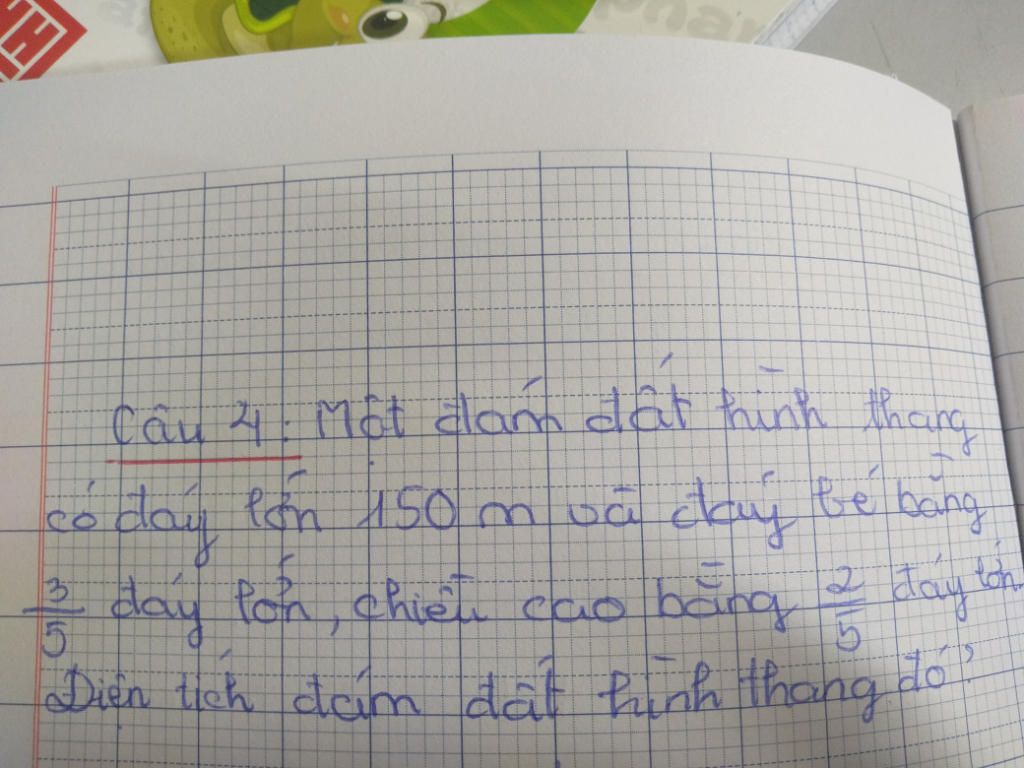 Câu 4: Một đám đất hình thang
có đáy lớn 150 m và đáy bé bằng
3/5 đáy lớn, chiều cao bằng 2/5 đáy lớn
Diện tích đám đất hình thang đó?